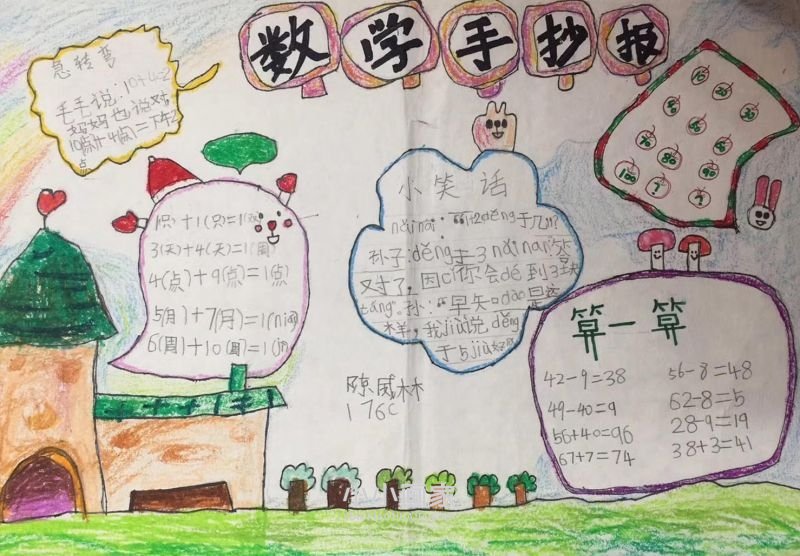 数学手抄报
急转弯
毛毛说:10+4=2
妈妈也说对
10点+4点=下午2
点
1(只)+1(只)=1(双)
3(天)+4(天)=1(周)
4(点)+9(点)=1(点)
5(月)+7(月)=1(nián)
6(周)+10(周)=1(
小笑话
nǎinai:“1+2děng于几?”
孙子:děng于3 nǎinai:答
对了,因cǐ你会dé到3块
táng”。孙:“早知dào是这
样,我jiù说děng
于5jiù好
陈威林
176c
10 20 30
90
100 ? ?
算一算
42-9=38 56-8=48
49-40=9 62-8=5
56+40=96 28-9=19
67+7=74 38+3=41